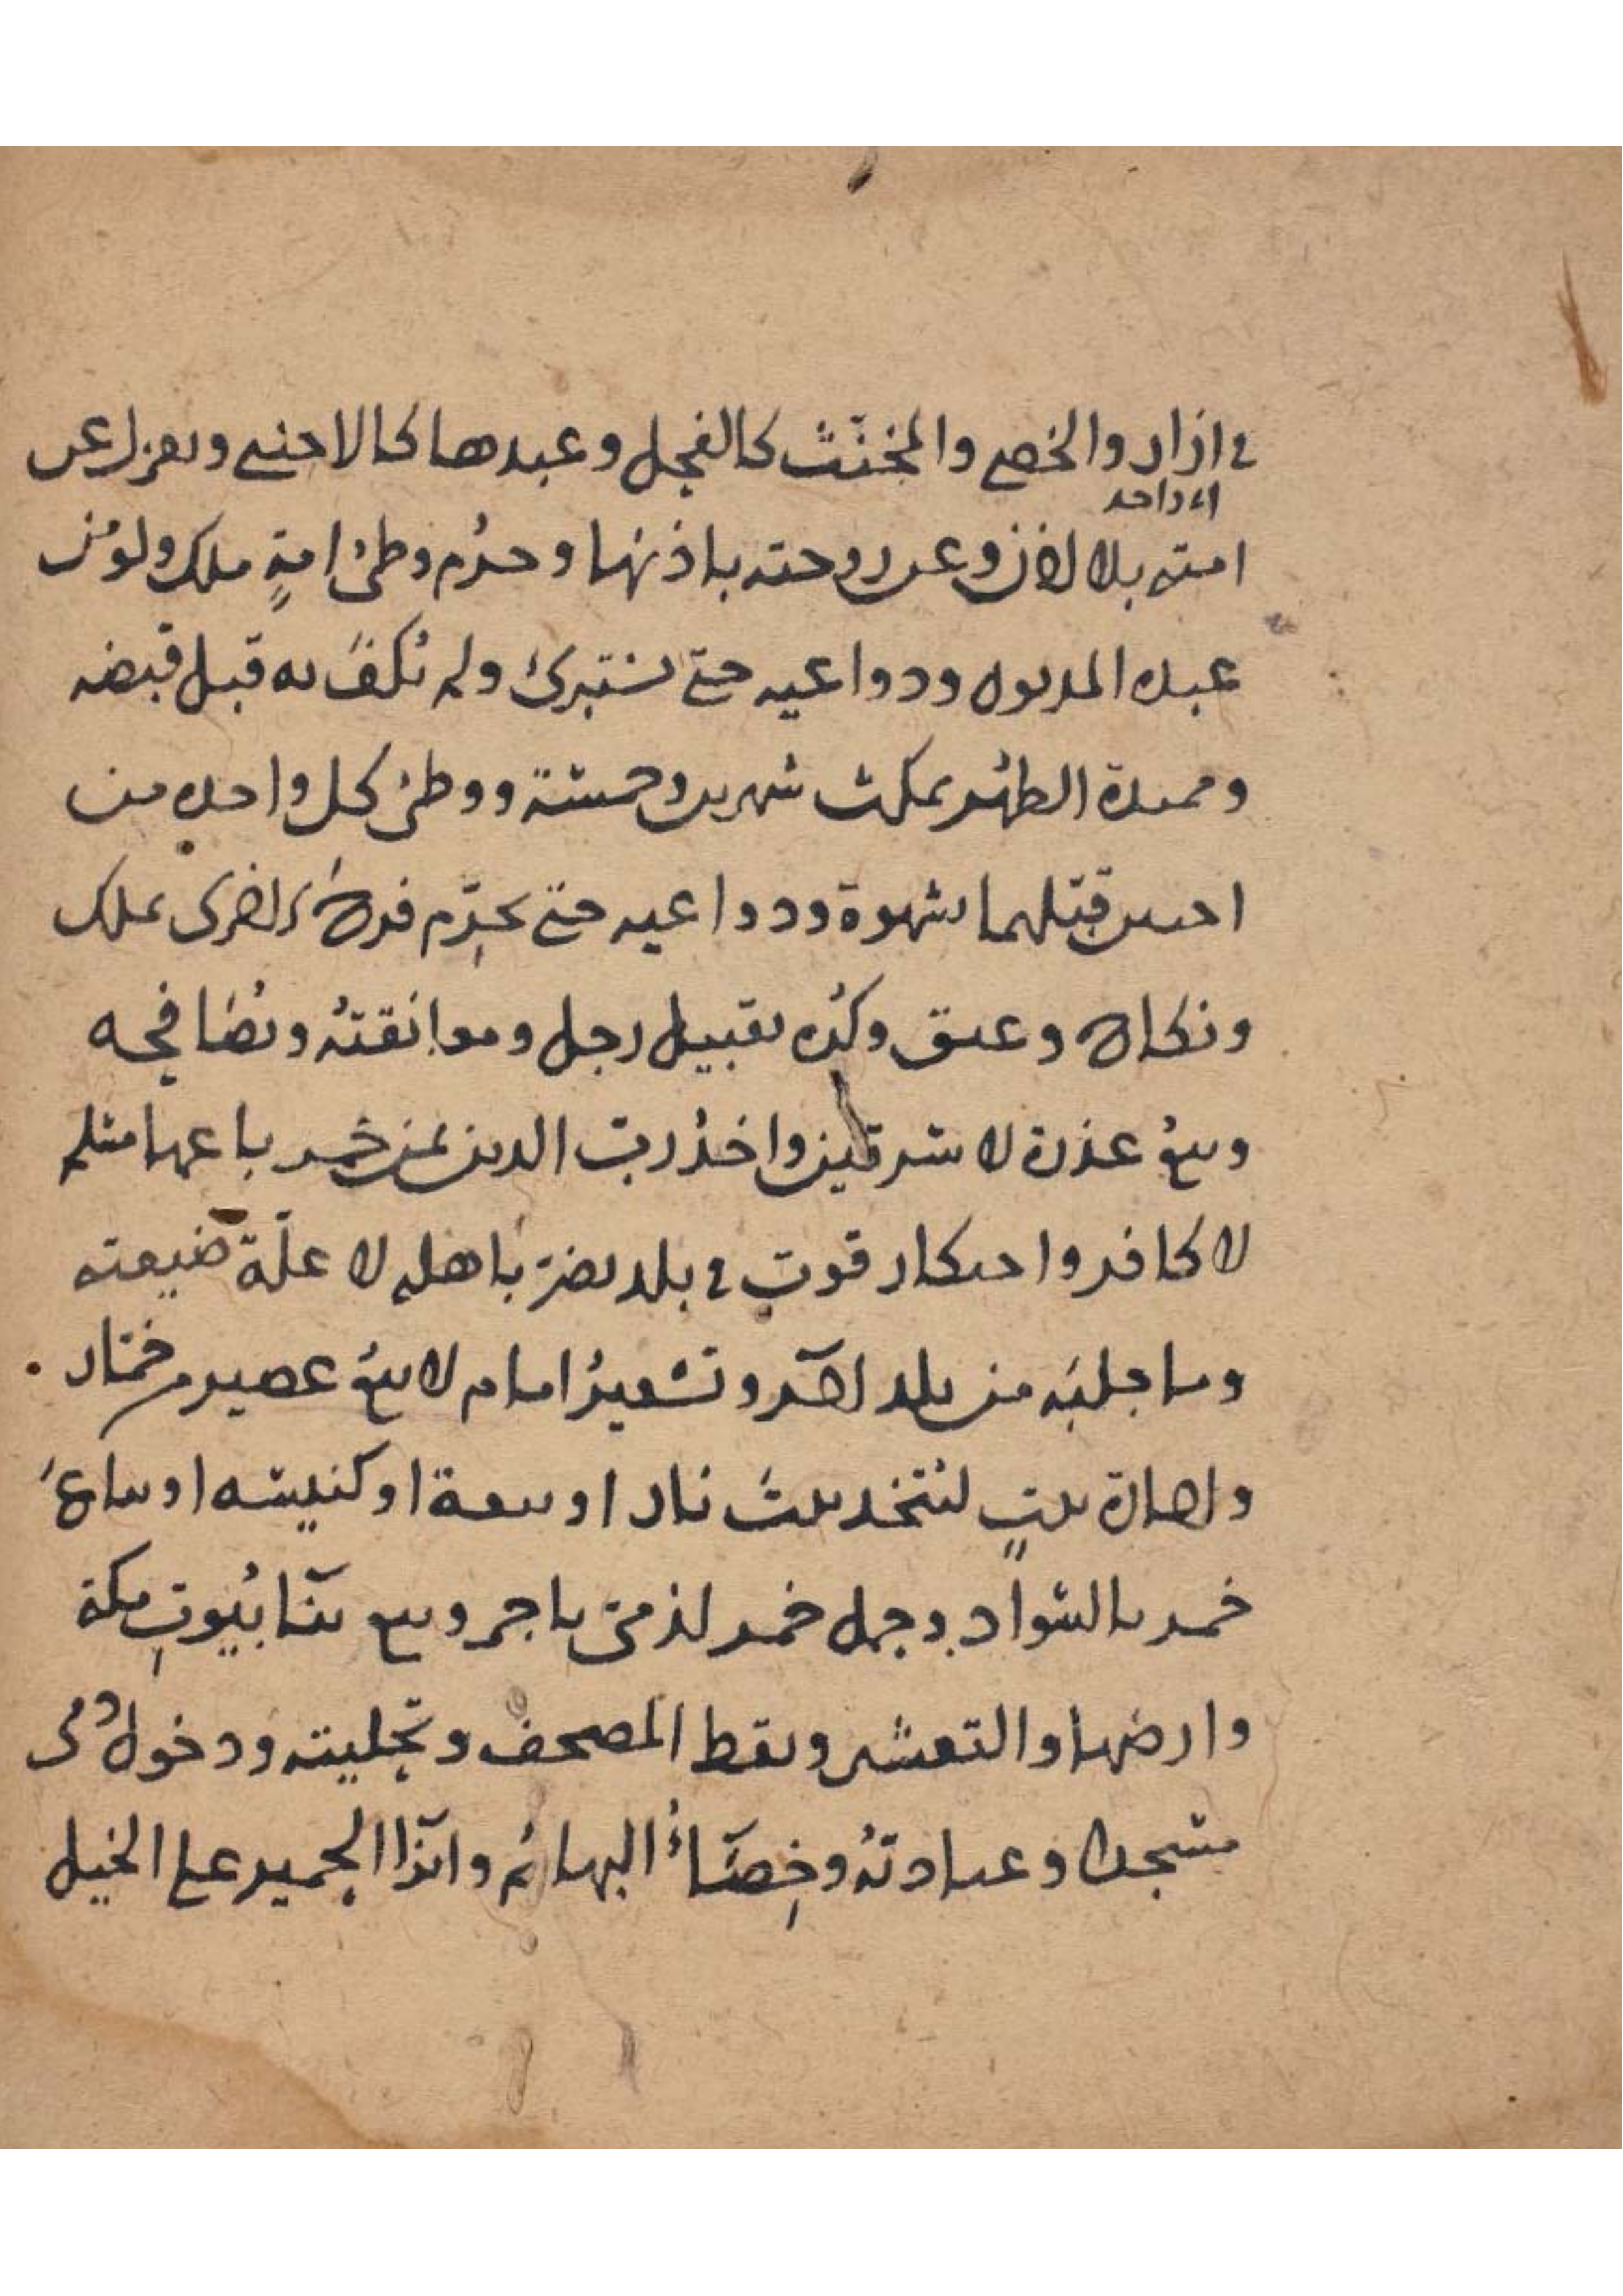 في ازار والخصي والمخنّث كالفحل وعبدها كالاجنبي ويعزل عن
اى واحد
امته بلا اذن وعن زوجته باذنها وحرُم وطئ امةٍ ملك ولو من
عبده المديون ودواعيه حتى تستبرئ ولم تكف به قبل قبضه
وممتدة الطهر يمكث شهرين وخمسة ووطئ كل واحدة من
اختين قبّلهما بشهوة ودواعيه حتى يحرّم فرج الاخرى بملك
ونكاح وعتق وكُره تقبيل رجل ومعانقتُه ويُصافحه
وبيعُ عذرة لا سرقين واخذُ ربّ الدين ثمن خمر باعها مسلم
لا كافر واحتكار قوتٍ في بلد يضرّ باهله لا غلّة ضيعته
وما جلبَه من بلد اخر وتسعيرُ امام لا بيعُ عصير من خمّار
واجارة بيتٍ ليُتخذ بيت نار او بيعة او كنيسه او يباعَ
خمر بالسواد وحمل خمر لذميّ باجر وبيع بناء بُيوتِ مكة
وارضها والتعشير ونقط المصحف وتحليته ودخول ذمى
مسجدا وعيادتُه وخِصاءُ البهائم وانزاء الحمير على الخيل